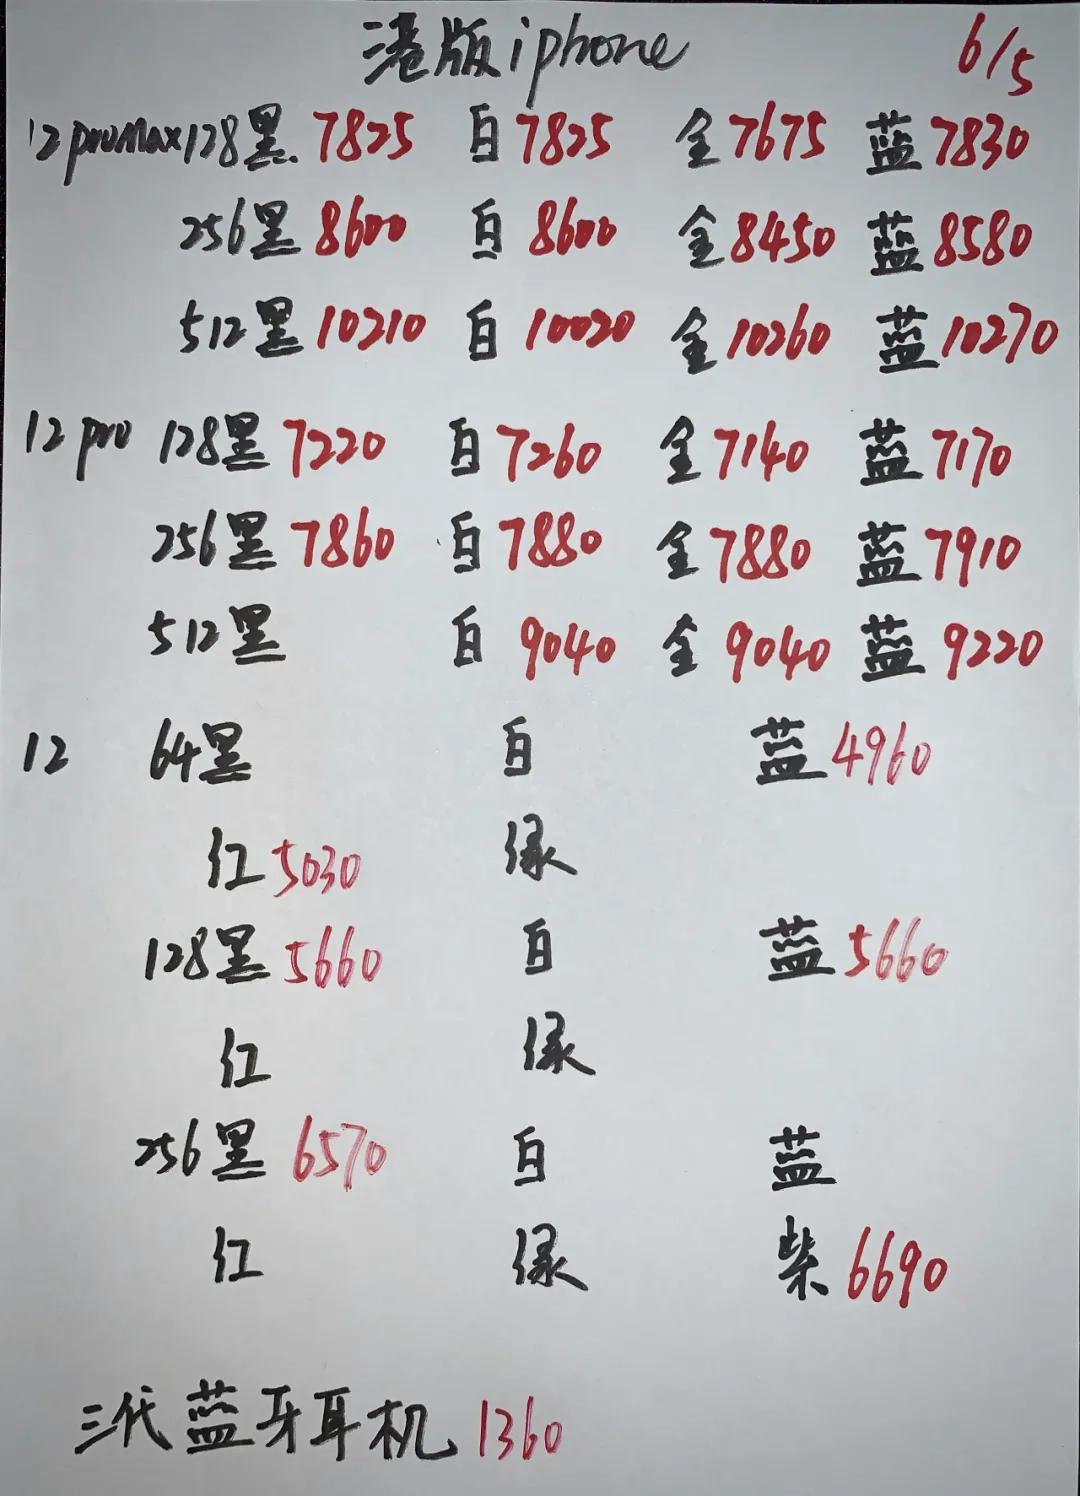 港版iphone 6/5
12promax128黑 7825 白 7825 金 7675 蓝 7830
256黑 8600 白 8600 金 8450 蓝 8580
512黑 10210 白 10020 金 10260 蓝 10270
12 pro 128黑 7220 白 7260 金 7140 蓝 7170
256黑 7860 白 7880 金 7880 蓝 7910
512黑 白 9040 金 9040 蓝 9220
12 64黑 白 蓝 4960
红 5030 绿
128黑 5660 白 蓝 5660
红 绿
256黑 6570 白 蓝
红 绿 紫 6690
三代蓝牙耳机 1360